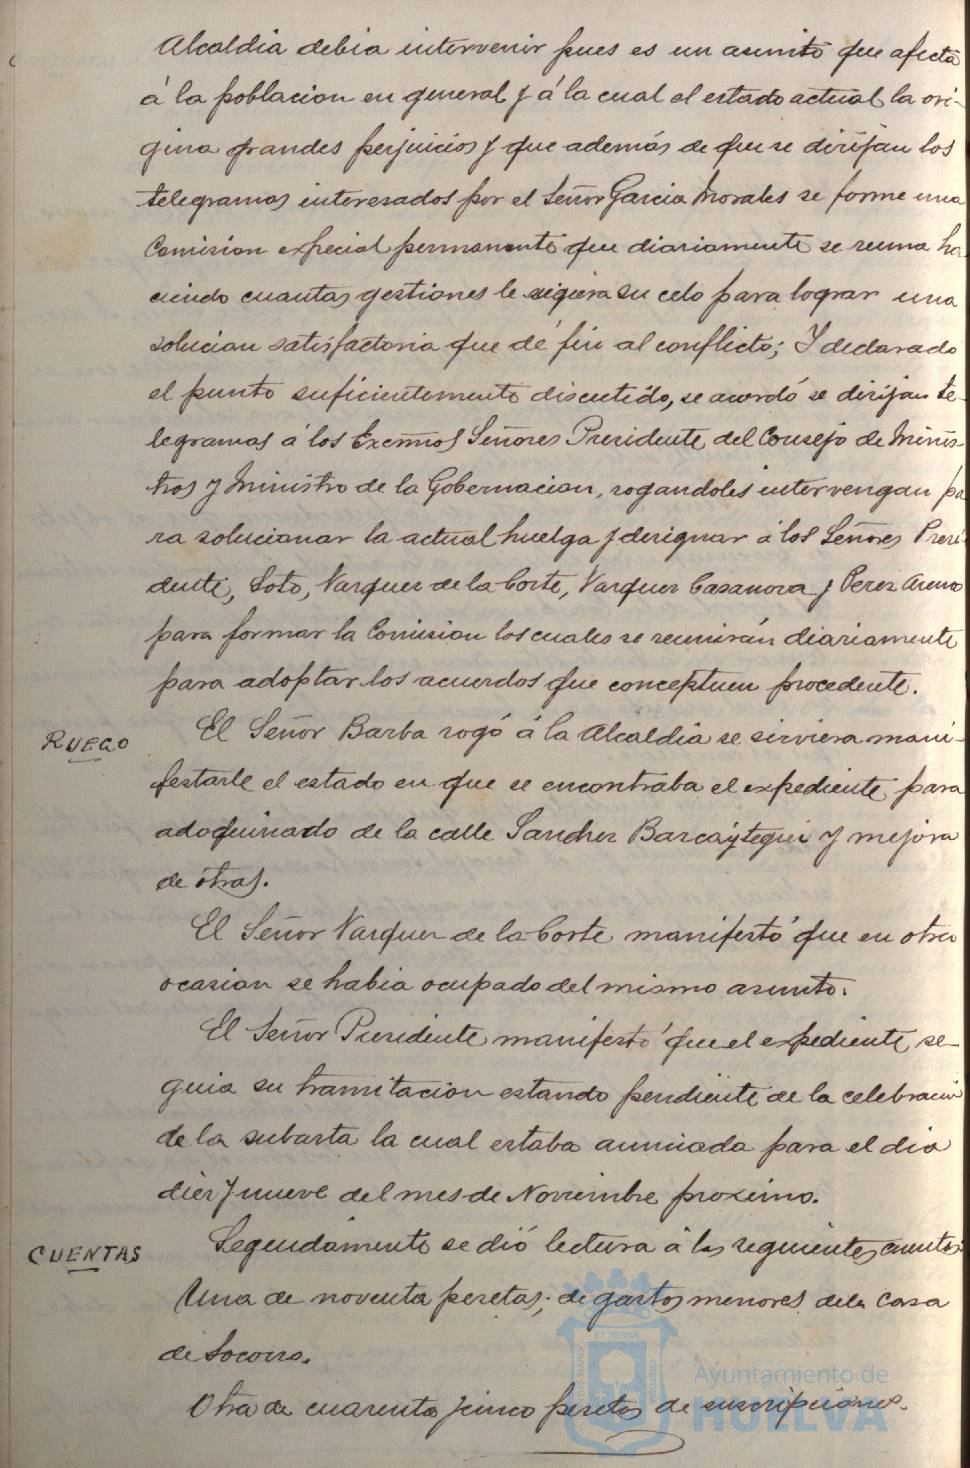 Alcaldia debia intervenir pues es un asunto que afecta
á la poblacion en general y á la cual el estado actual la ori-
gina grandes perjuicios y que además de que se dirijan los
telegramas interesados por el Señor Garcia Morales se forme una
Comision especial permanente que diariamente se reuna ha-
ciendo cuantas gestiones le sugiera su celo para lograr una
solucion satisfactoria que dé fin al conflicto; Y declarado
el punto suficientemente discutido, se acordó se dirijan te-
legramas á los Excmos Señores Presidente del Consejo de Minis-
tros y Ministro de la Gobernacion, rogandoles intervengan pa-
ra solucionar la actual huelga y designar á los Señores Presi-
dente, Soto, Vazquez de la Corte, Vazquez Casanova y Perez
para formar la Comision los cuales se reunirán diariamente
para adoptar los acuerdos que conceptuen procedente.
RUEGO
El Señor Barba rogó á la Alcaldia se sirviera mani-
festarle el estado en que se encontraba el expediente para
adoquinado de la calle Sanchez Barcaýtegui y mejora
de otras.
El Señor Vazquez de la Corte manifestó que en otra
ocasion se habia ocupado del mismo asunto.
El Señor Presidente manifestó que el expediente se-
guia su tramitacion estando pendiente de la celebracion
de la subasta la cual estaba anunciada para el dia
diez y nueve del mes de Noviembre proximo.
CUENTAS
Seguidamente se dió lectura á las siguientes cuentas:
Una de noventa pesetas, de gastos menores de la Casa
de Socorro.
Otra de cuarenta y cinco pesetas de suscripciones.
ET TERRÆ
PORTUS MARIS
CUSTODIA
Ayuntamiento de
HUELVA